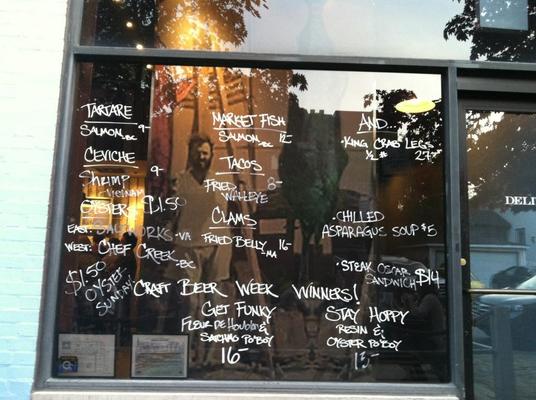 TARTARE
SALMON, BC 9-
CEVICHE
Shrimp 9-
VIETNAM
OYSTERS $1.50
EAST: SALTWORKS-VA
WEST: CHEF CREEK, -BC
$1.50
OYSTER
SUNDAY
MARKET FISH
SALMON, BC 12-
TACOS
FRIED 8-
WALLEYE
CLAMS
FRIED BELLY, MA 16-
AND...
-KING CRAB LEGS
½ # 27-
-CHILLED
ASPARAGUS SOUP $5
-STEAK OSCAR
SANDWICH-$14
CRAFT BEER WEEK WINNERS!
GET FUNKY
FLEUR DE HOUBLON &
SATCHMO PO'BOY
16-
STAY HOPPY
RESIN &
OYSTER PO'BOY
13-
DELI